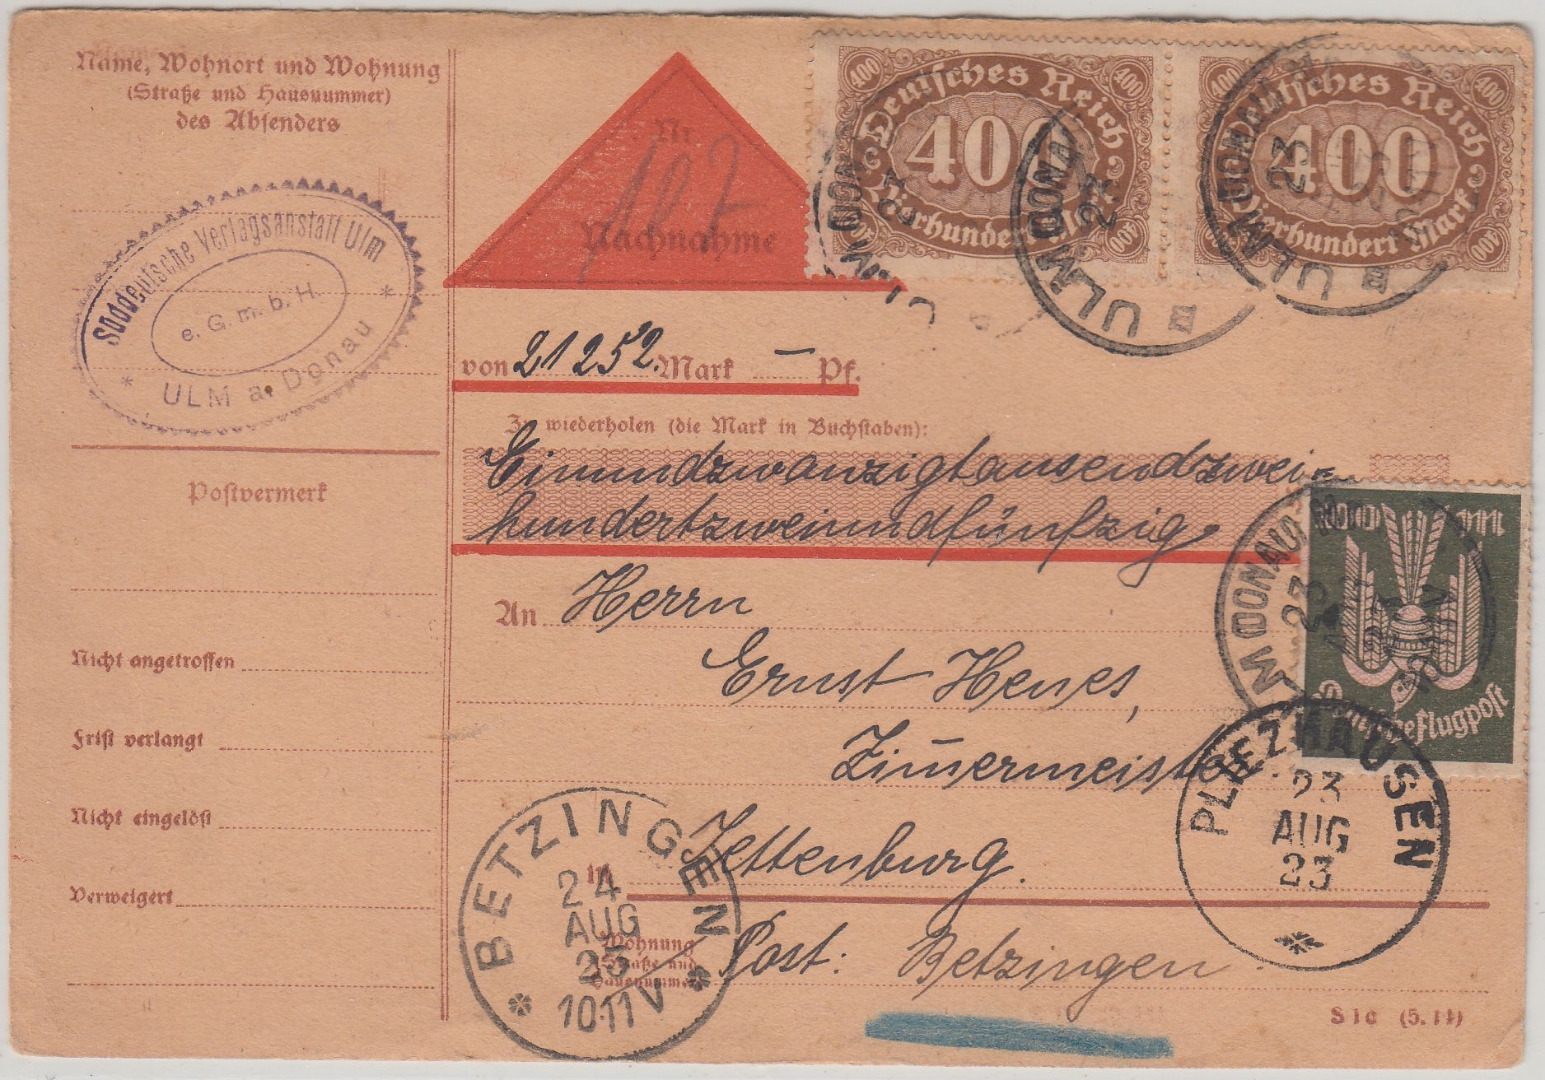 Name, Wohnort und Wohnung
(Straße und Hausnummer)
des Absenders
Süddeutsche Verlagsanstalt Ulm
e. G. m. b. H.
* ULM a. Donau *
Postvermerk
Nicht angetroffen
Frist verlangt
Nicht eingelöst
Verweigert
Nr
Nachnahme
400 Deutsches Reich 400
400
Vierhundert Mark
400 400
400 Deutsches Reich 400
400
Vierhundert Mark
400 400
ULM DONAU
23
ULM DONAU
23
ULM DONAU
23
von 21252. Mark — Pf.
Zu wiederholen (die Mark in Buchstaben):
Einundzwanzigtausendzwei
hundertzweiundfünfzig
An Herrn
Ernst Henes,
Zim̄ermeister
in Jettenburg.
Wohnung
Straße und
Hausnummer
Post: Betzingen
Deutscheflugpost
M DONAU
23
PLIEZHAUSEN
23
AUG
23
BETZINGEN
24
AUG
23
10-11V
S1c (5. 11)